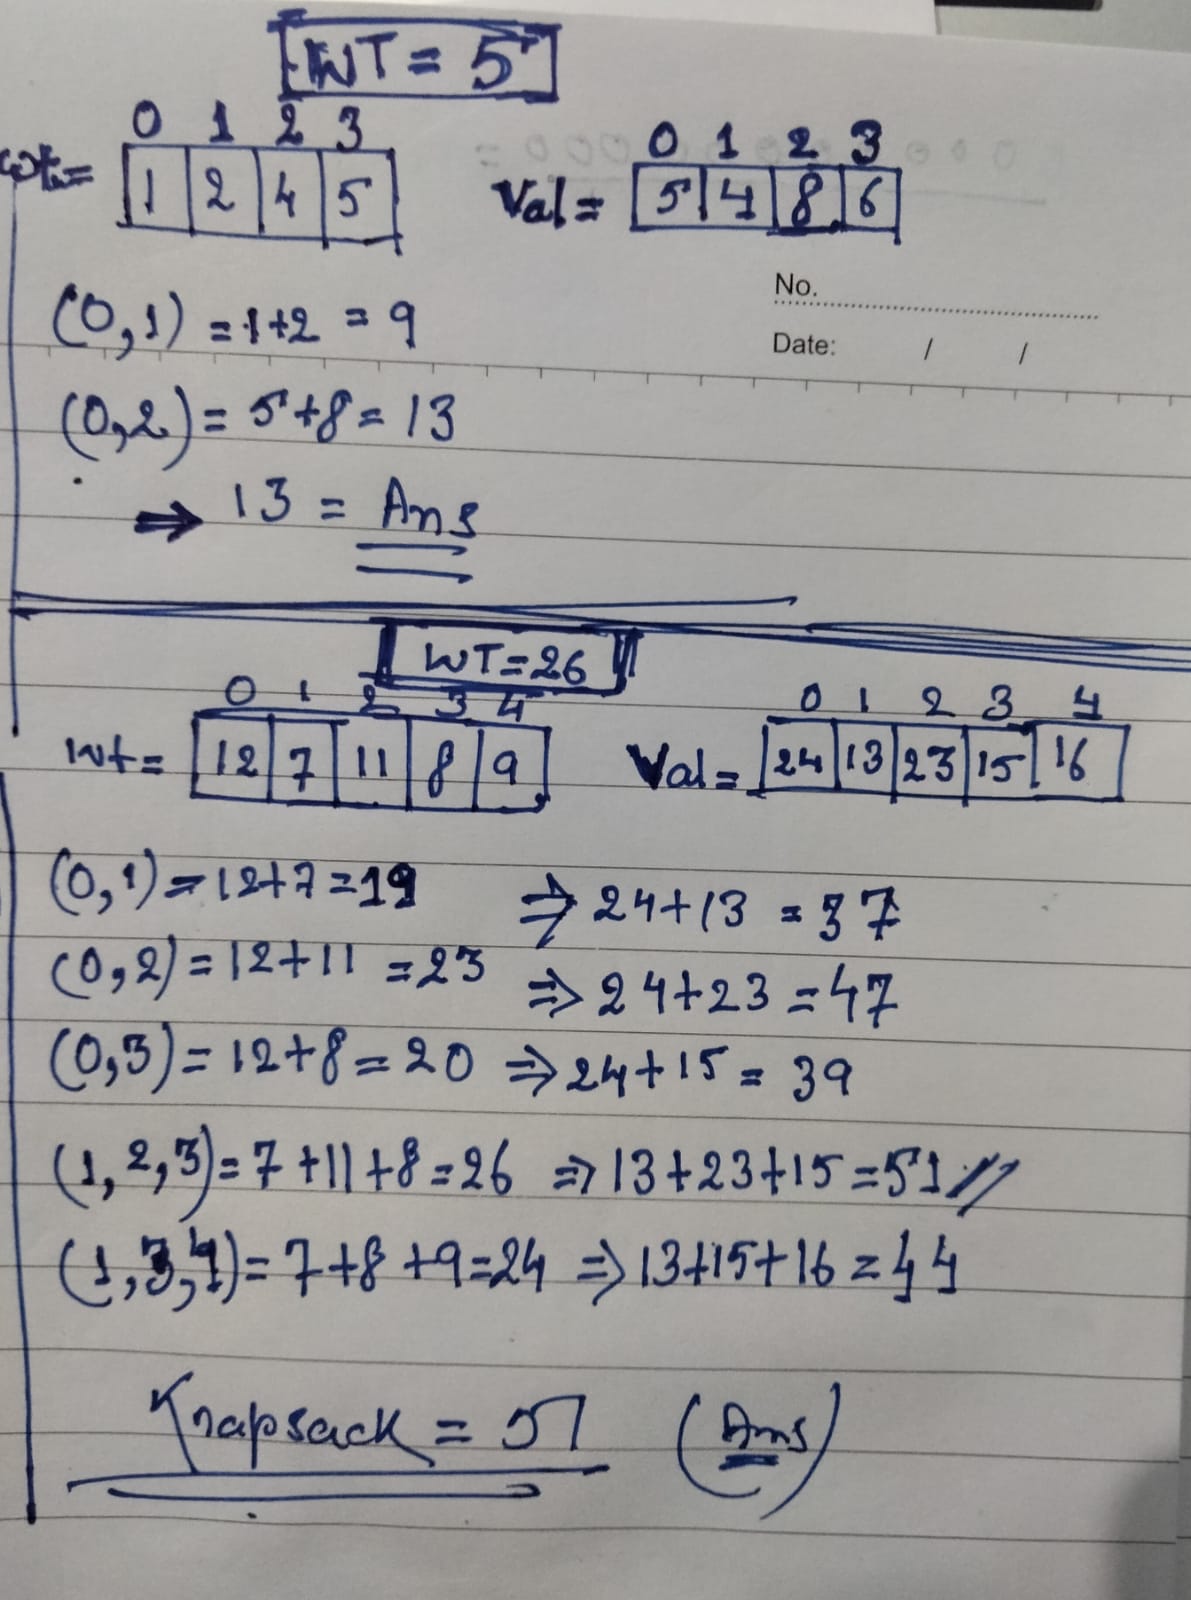 WT = 5
0 1 2 3
wt = 1 2 4 5
0 1 2 3
Val = 5 4 8 6
No.
Date: / /
(0,1) = 1+2 = 9
(0,2) = 5+8 = 13
⇒ 13 = Ans
WT=26
0 1 2 3 4
wt = 12 7 11 8 9
0 1 2 3 4
Val = 24 13 23 15 16
(0,1) = 12+7 = 19 ⇒ 24+13 = 37
(0,2) = 12+11 = 23 ⇒ 24+23 = 47
(0,3) = 12+8 = 20 ⇒ 24+15 = 39
(1,2,3) = 7+11+8 = 26 ⇒ 13+23+15 = 51 //
(1,3,4) = 7+8+9 = 24 ⇒ 13+15+16 = 44
Knapsack = 51 (Ans)